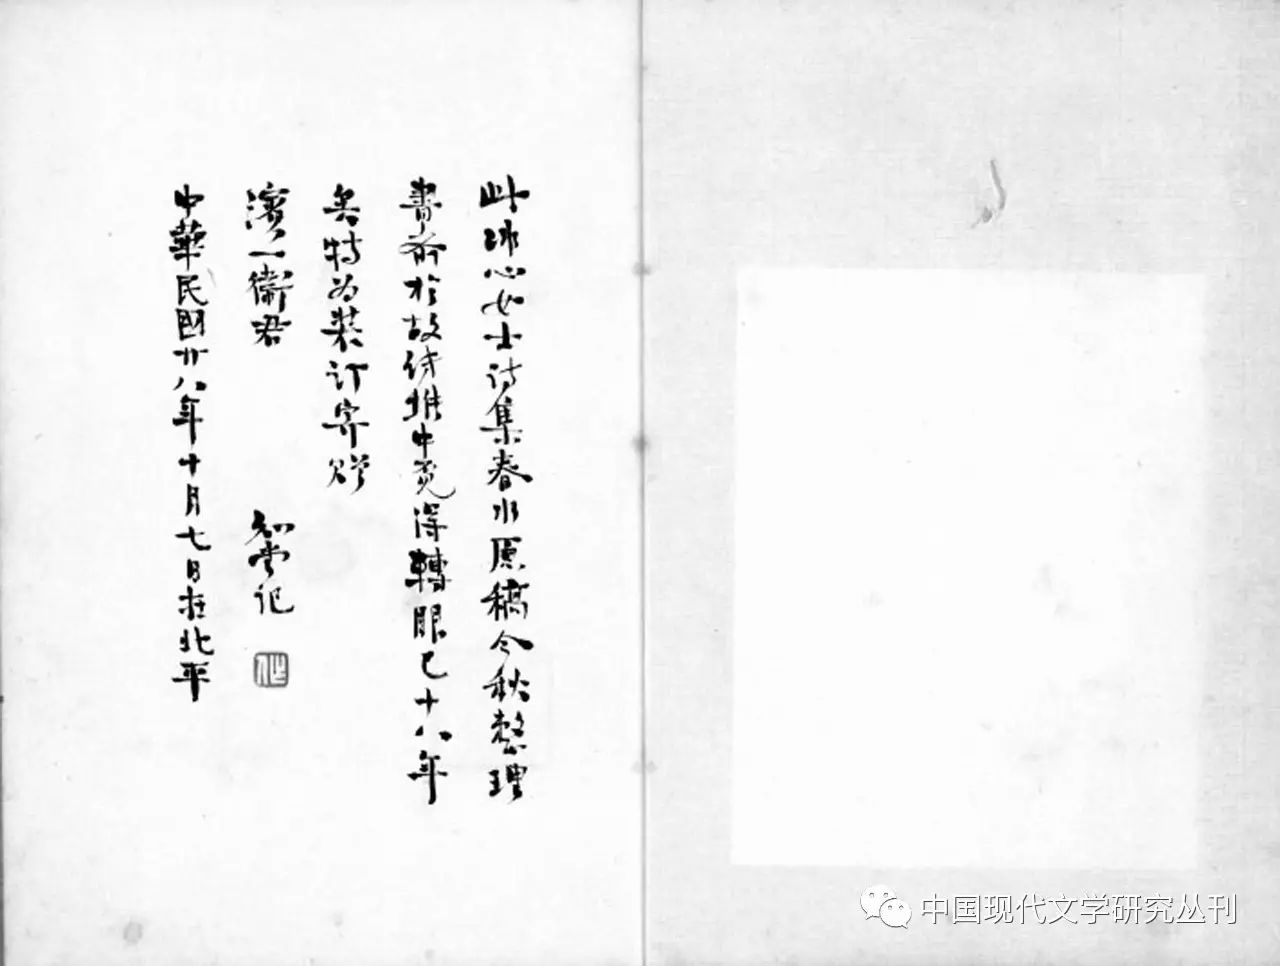 此冰心女士诗集春水原稿今秋整理
書斋於故纸堆中覓得轉眼已十八年
矣特为装订寄贈
濱一衞君
知堂记
中華民國廿八年十月七日在北平
中国现代文学研究丛刊